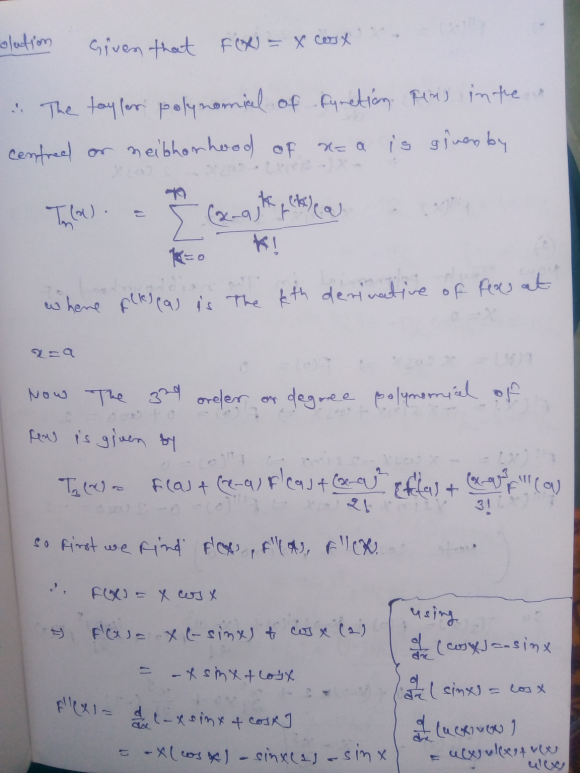 olution Given that F(x) = x cosx
∴ The taylor polynomial of function F(x) in the
centred or neibhorhood of x = a is given by
Tₙ(x) = ∑_{k=0}^{n} (x-a)^k F^(k)(a) / k!
where F^(k)(a) is The kth derivative of F(x) at
x = a
Now The 3rd order or degree polynomial of
F(x) is given by
T₃(x) = F(a) + (x-a) F'(a) + (x-a)²/2! F''(a) + (x-a)³/3! F'''(a)
so First we find F'(x), F''(x), F'''(x)
∴ F(x) = x cosx
⇒ F'(x) = x(-sinx) + cosx (1)
= -x sinx + cosx
F''(x) = d/dx [-x sinx + cosx]
= -x(cosx) - sinx(1) - sinx
using
d/dx (cosx) = -sinx
d/dx (sinx) = cosx
d/dx (u(x)v(x))
= u(x)v'(x) + v(x)
u'(x)